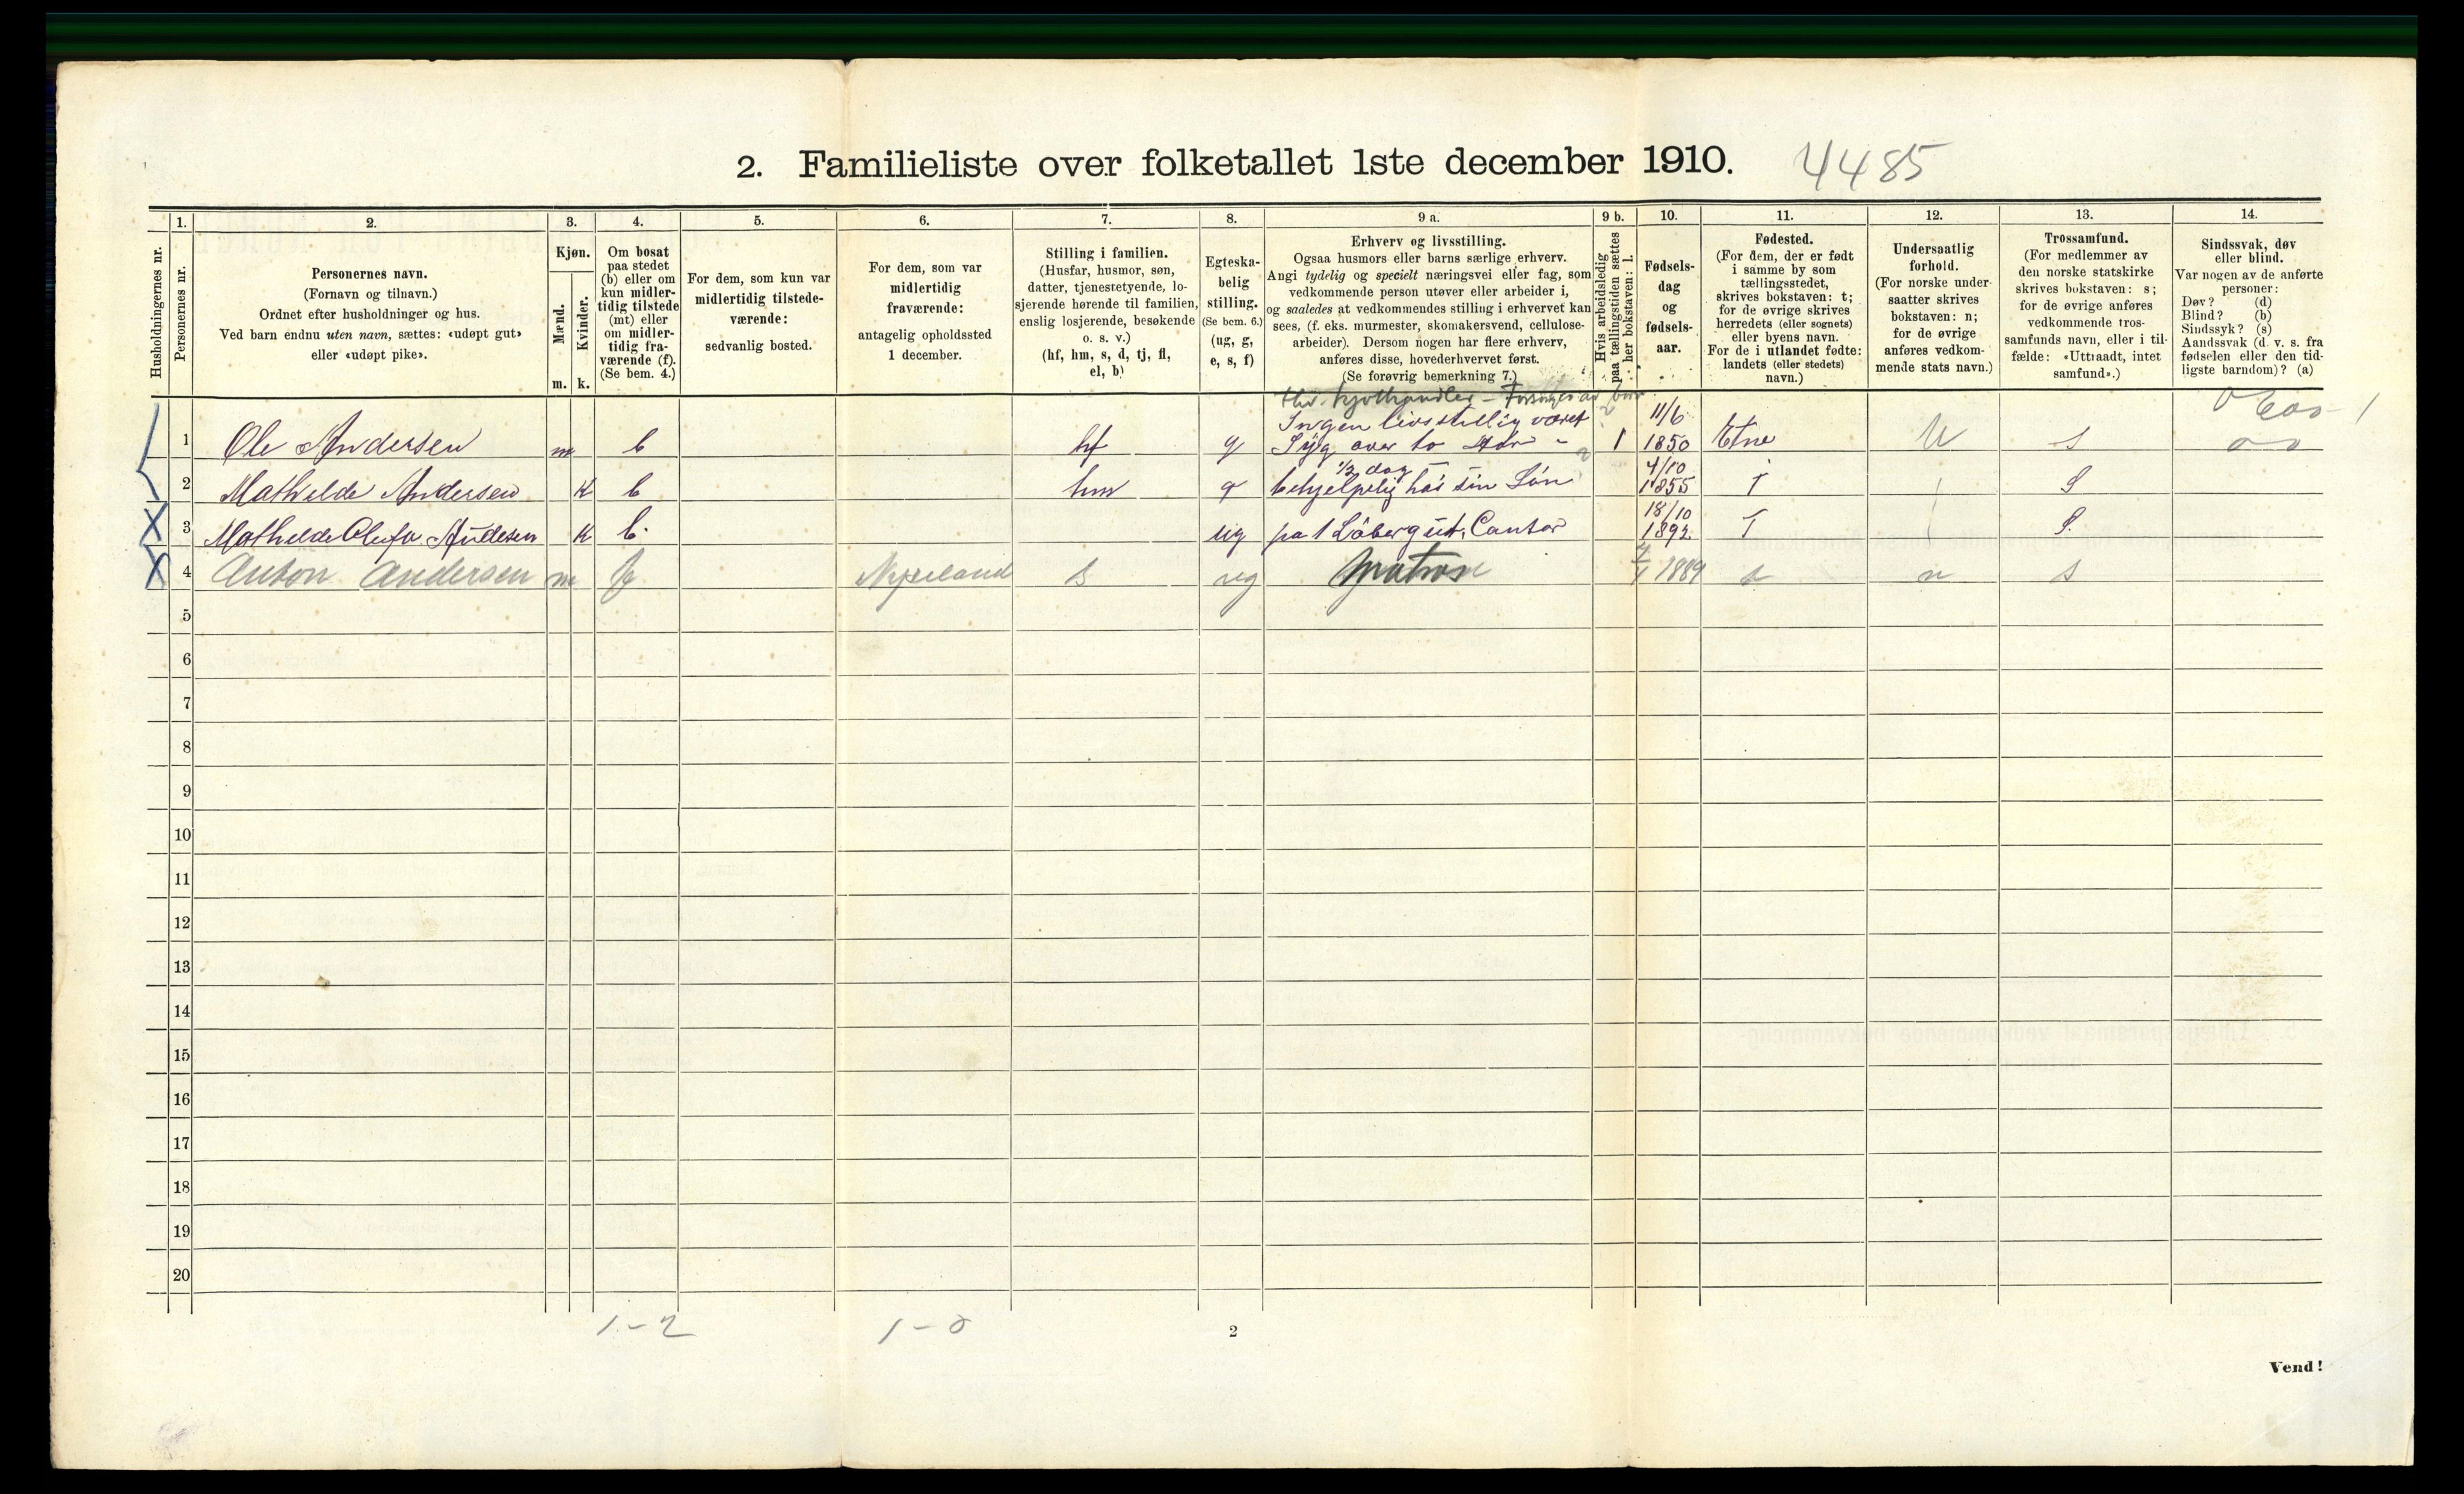 2. Familieliste over folketallet 1ste december 1910. 4485
Husholdningernes nr.
1.
Personernes nr.
2.
Personernes navn.
(Fornavn og tilnavn.)
Ordnet efter husholdninger og hus.
Ved barn endnu uten navn, sættes: «udøpt gut»
eller «udøpt pike».
3.
Kjøn.
Mænd.
Kvinder.
m. k.
4.
Om bosat
paa stedet
(b) eller om
kun midler-
tidig tilstede
(mt) eller
om midler-
tidig fra-
værende (f).
(Se bem. 4.)
5.
For dem, som kun var
midlertidig tilstede-
værende:
sedvanlig bosted.
6.
For dem, som var
midlertidig
fraværende:
antagelig opholdssted
1 december.
7.
Stilling i familien.
(Husfar, husmor, søn,
datter, tjenestetyende, lo-
sjerende hørende til familien,
enslig losjerende, besøkende
o. s. v.)
(hf, hm, s, d, tj, fl,
el, b)
8.
Egteska-
belig
stilling.
(Se bem. 6.)
(ug, g,
e, s, f)
9 a.
Erhverv og livsstilling.
Ogsaa husmors eller barns særlige erhverv.
Angi tydelig og specielt næringsvei eller fag, som
vedkommende person utøver eller arbeider i,
og saaledes at vedkommendes stilling i erhvervet kan
sees, (f. eks. murmester, skomakersvend, cellulose-
arbeider). Dersom nogen har flere erhverv,
anføres disse, hovederhvervet først.
(Se forøvrig bemerkning 7.)
9 b.
Hvis arbeidsledig
paa tællingstiden sættes
her bokstaven: l.
10.
Fødsels-
dag
og
fødsels-
aar.
11.
Fødested.
(For dem, der er født
i samme by som
tællingsstedet,
skrives bokstaven: t;
for de øvrige skrives
herredets (eller sognets)
eller byens navn.
For de i utlandet fødte:
landets (eller stedets)
navn.)
12.
Undersaatlig
forhold.
(For norske under-
saatter skrives
bokstaven: n;
for de øvrige
anføres vedkom-
mende stats navn.)
13.
Trossamfund.
(For medlemmer av
den norske statskirke
skrives bokstaven: s;
for de øvrige anføres
vedkommende tros-
samfunds navn, eller i til-
fælde: «Uttraadt, intet
samfund».)
14.
Sindssvak, døv
eller blind.
Var nogen av de anførte
personer:
Døv? (d)
Blind? (b)
Sindssyk? (s)
Aandssvak (d. v. s. fra
fødselen eller den tid-
ligste barndom)? (a)
Ingen livsstillig været
11/6
1 Ole Andersen m b hf g Syg over to 1850 Etne s
1/2 dag 4/10
2 Mathilde Andersen k b hm g behjelpelig hos sin Sön 1855 T S
18/10
3 Mathilde Olufa Andersen k b. ug 1892. T S.
4 Anton Andersen m f s ug Matros 1889 n s
5
6
7
8
9
10
11
12
13
14
15
16
17
18
19
20
1-2
2
Vend!